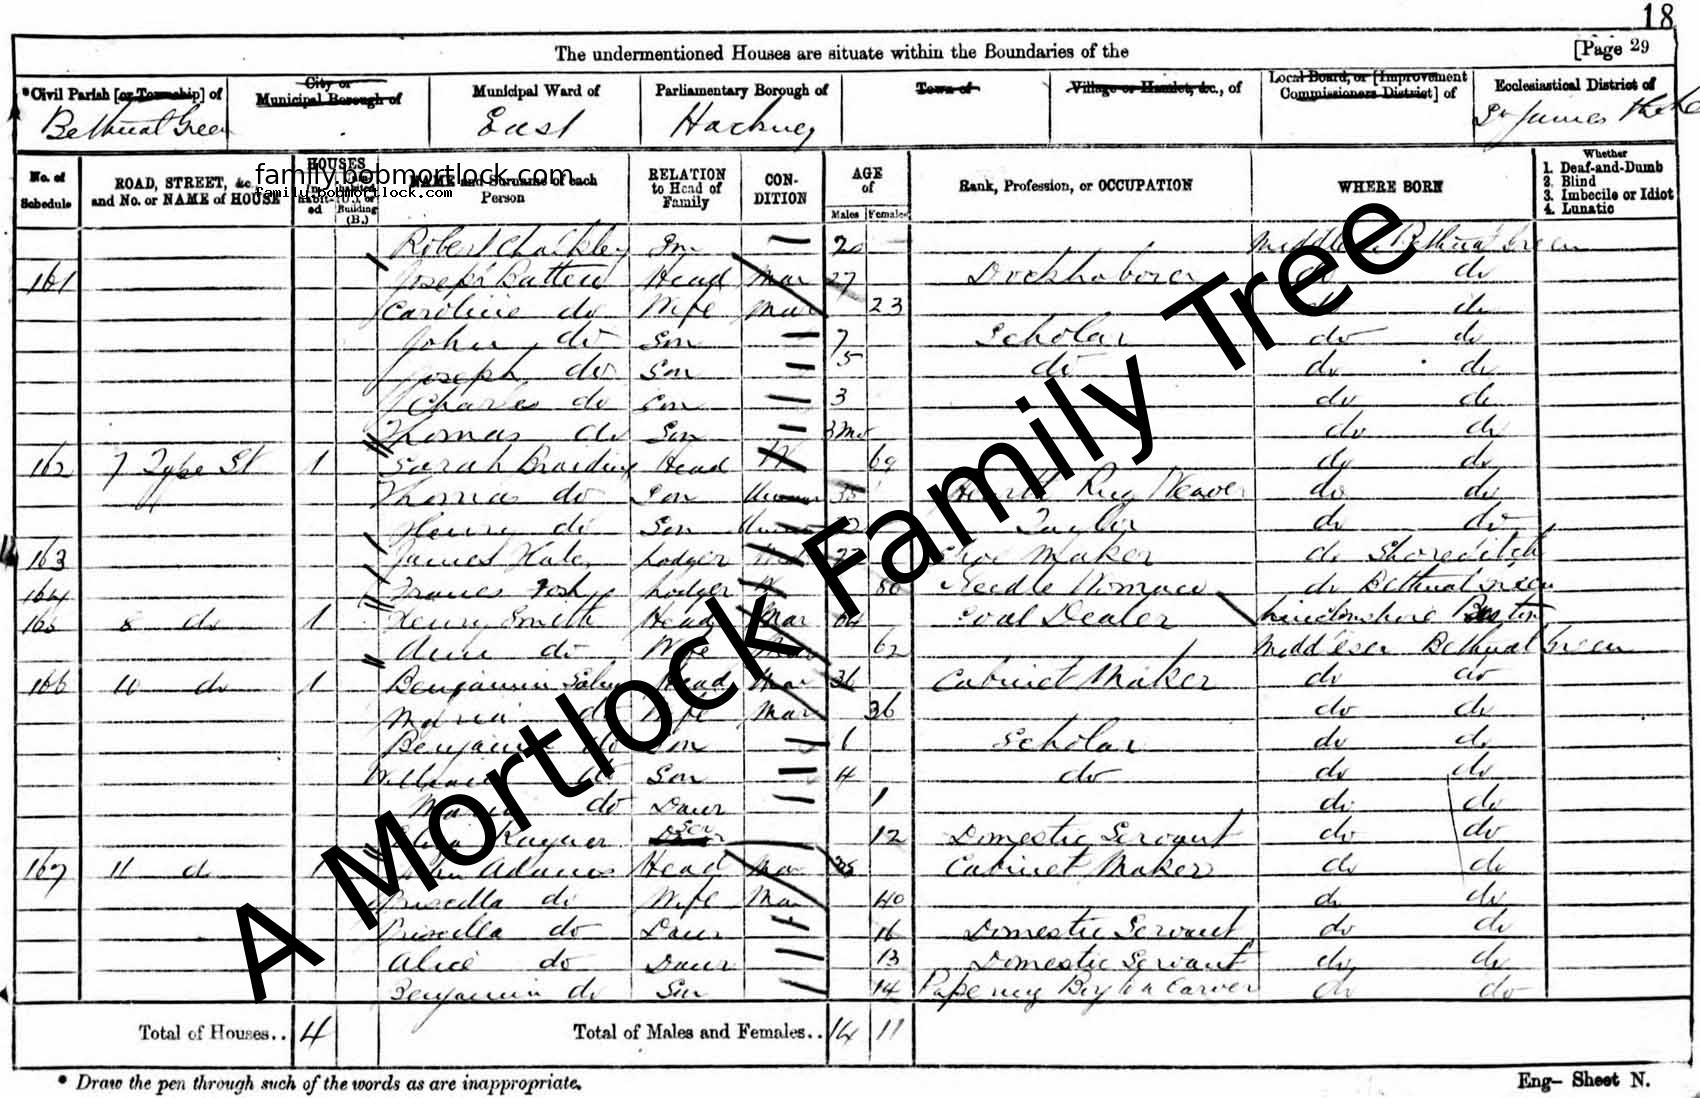 18
The undermentioned Houses are situate within the Boundaries of the [Page 29
*Civil Parish [or Township] of City or Municipal Borough of Municipal Ward of Parliamentary Borough of Town of Village or Hamlet, &c., of Local Board, or [Improvement Commissioners District] of Ecclesiastical District of
Bethnal Green East Hackney St James the
No. of Schedule ROAD, STREET, &c., and No. or NAME of HOUSE HOUSES NAME and Surname of each Person RELATION to Head of Family CON-DITION AGE of Males Females Rank, Profession, or OCCUPATION WHERE BORN Whether 1. Deaf-and-Dumb 2. Blind 3. Imbecile or Idiot 4. Lunatic
family.bobmortlock.com
family.bobmortlock.com
Robert Chalkley Son 20 Bethnal Green
161 Joseph Batten Head Mar 27 Dock Laborer do do
Caroline do Wife Mar 23 do do
John do Son 7 Scholar do do
Joseph do Son 5 do do do
Charles do Son 3 do do
Thomas do Son 3 Mo do do
162 7 Type St 1 Sarah Braiding Head W 69 do do
Thomas do Son 35 Hearth Rug Weaver do do
Henry do Son do do
163 James Lodger Shoe Maker do Shoreditch
164 Frances Lodger W 80 Needle Woman do Bethnal Green
165 8 do 1 Henry Smith Head Mar Coal Dealer Lincolnshire Boston
Ann do Wife Mar 62 Middlesex Bethnal Green
166 10 do 1 Benjamin Head Mar 36 Cabinet Maker do do
Maria do Wife Mar 36 do do
Benjamin do Son Scholar do do
William do Son 4 do do do
Maria do Daur 1 do do
Eliza Ser 12 Domestic Servant do do
167 11 do 1 John Adams Head Mar Cabinet Maker do do
Priscilla do Wife Mar 40 do do
Priscilla do Daur 16 Domestic Servant do do
Alice do Daur 13 Domestic Servant do do
Benjamin do Son 14 Carver do do
Total of Houses.. 4 Total of Males and Females.. 14 11
* Draw the pen through such of the words as are inappropriate.
Eng— Sheet N.
A Mortlock Family Tree